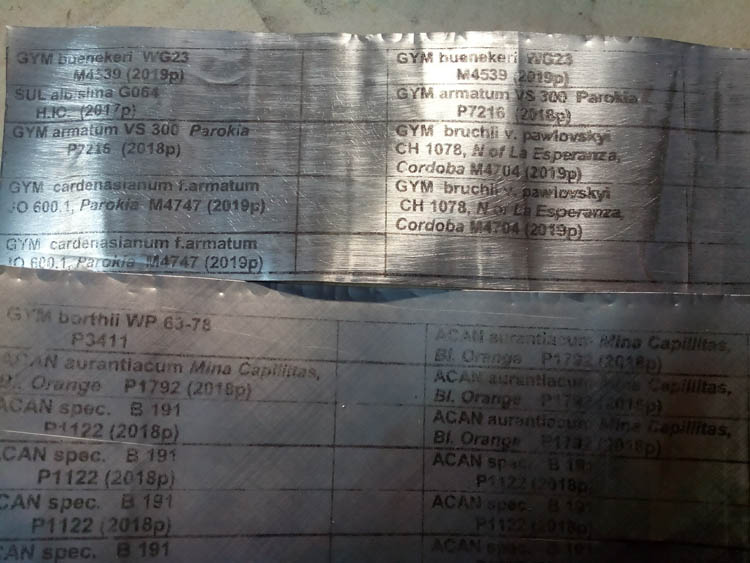 GYM buenekeri WG23
M4539 (2019p)
SUL albisima G064
H.IC. (2017p)
GYM armatum VS 300 Parokia
P7216 (2018p)
GYM cardenasianum f.armatum
JO 600.1, Parokia M4747 (2019p)
GYM cardenasianum f.armatum
JO 600.1, Parokia M4747 (2019p)
GYM buenekeri WG23
M4539 (2019p)
GYM armatum VS 300 Parokia
P7216 (2018p)
GYM bruchii v. pawlovskyi
CH 1078, N of La Esperanza,
Cordoba M4704 (2019p)
GYM bruchii v. pawlovskyi
CH 1078, N of La Esperanza,
Cordoba M4704 (2019p)
GYM borthii WP 63-78
P3411
ACAN aurantiacum Mina Capillitas,
Bl. Orange P1792 (2018p)
ACAN spec. B 191
P1122 (2018p)
ACAN spec. B 191
P1122 (2018p)
ACAN spec. B 191
P1122 (2018p)
ACAN spec. B 191
ACAN aurantiacum Mina Capillitas,
Bl. Orange P1792 (2018p)
ACAN aurantiacum Mina Capillitas,
Bl. Orange P1792 (2018p)
ACAN aurantiacum Mina Capillitas,
Bl. Orange P1792 (2018p)
ACAN spec. B 191
P1122 (2018p)
ACAN spec. B 191
P1122 (2018p)
ACAN spec. B 191